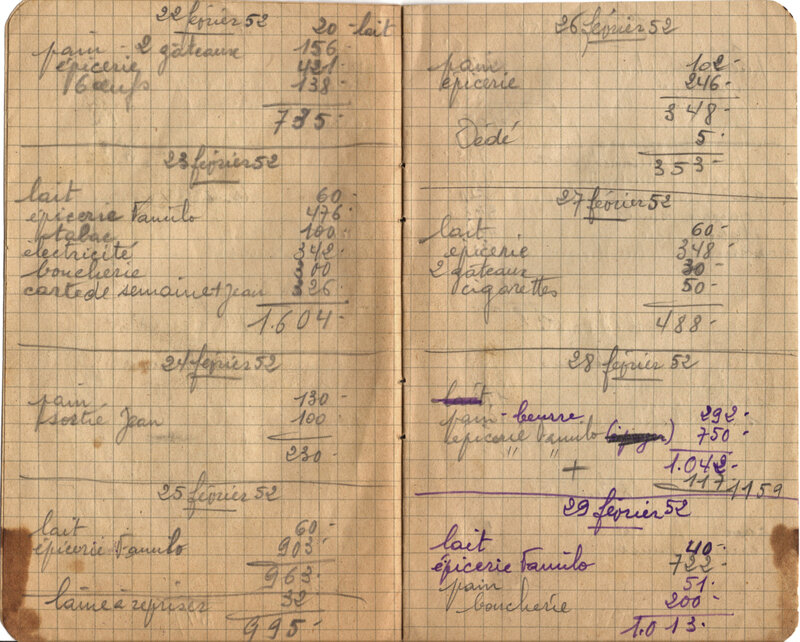 22 février 52
20 - lait
pain - 2 gâteaux 156
épicerie 421-
6 œufs 138-
735-
23 février 52
lait 60-
épicerie Familo 476-
tabac 100-
électricité 342-
boucherie 00
carte de semaine + Jean 326-
1.604-
24 février 52
pain 130-
sortie Jean 100-
230-
25 février 52
lait 60-
épicerie Familo 903-
963-
laine à repriser 32-
995-
26 février 52
pain 102-
épicerie 246-
348-
Dédé 5-
353-
27 février 52
lait 60-
épicerie 348-
2 gâteaux 30-
cigarettes 50-
488-
28 février 52
lait
pain - beurre 292-
épicerie Familo 750-
" "
1.042-
+ 117
1159
29 février 52
lait 40-
épicerie Familo 722-
pain 51-
boucherie 200-
1.013-